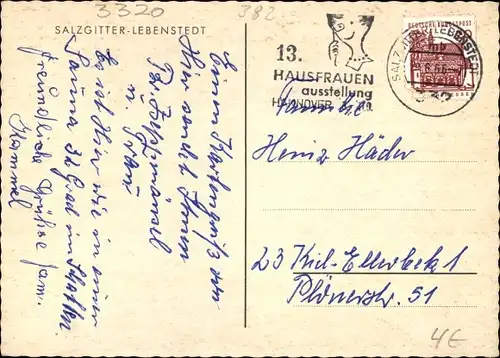 3320
382
SALZGITTER-LEBENSTEDT
Einen Kartengruß von
Hier sendet Ihnen
u. Frau
Es ist Hier wie in einer
Sauna 32 Grad im Schatten
freundliche Grüße Fam.
13.
HAUSFRAUEN
ausstellung
HANNOVER
DEUTSCHE BUNDESPOST
SALZGITTER-LEBENSTEDT
mb
Familie
Heinz Häder
23 Kiel-Ellerbek 1
Plönerstr. 51
4€